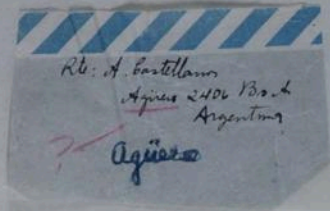 Rte: A. Castellanos
Agüero 2406 Bs. A
Argentina
?
Agüero